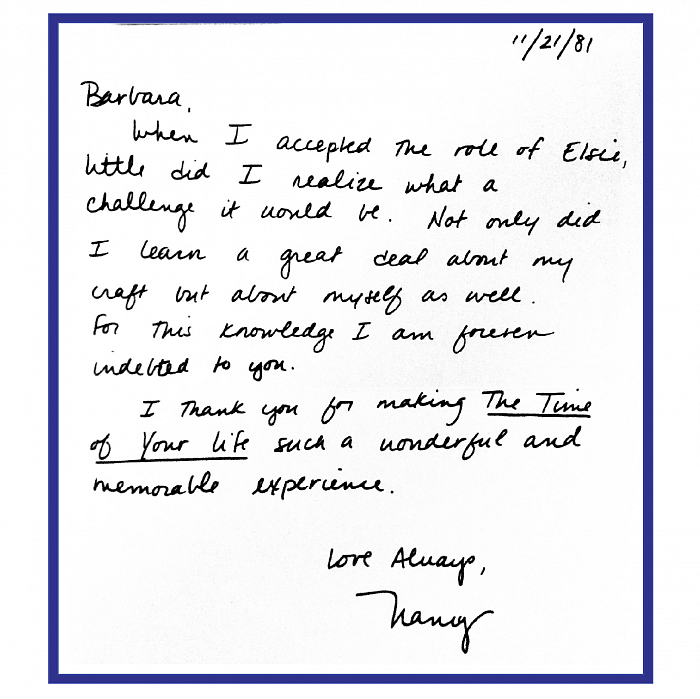 11/21/81
Barbara,
When I accepted the role of Elsie,
little did I realize what a
challenge it would be. Not only did
I learn a great deal about my
craft but about myself as well.
For this knowledge I am forever
indebted to you.
I thank you for making The Time
of Your Life such a wonderful and
memorable experience.
Love Always,
Nancy